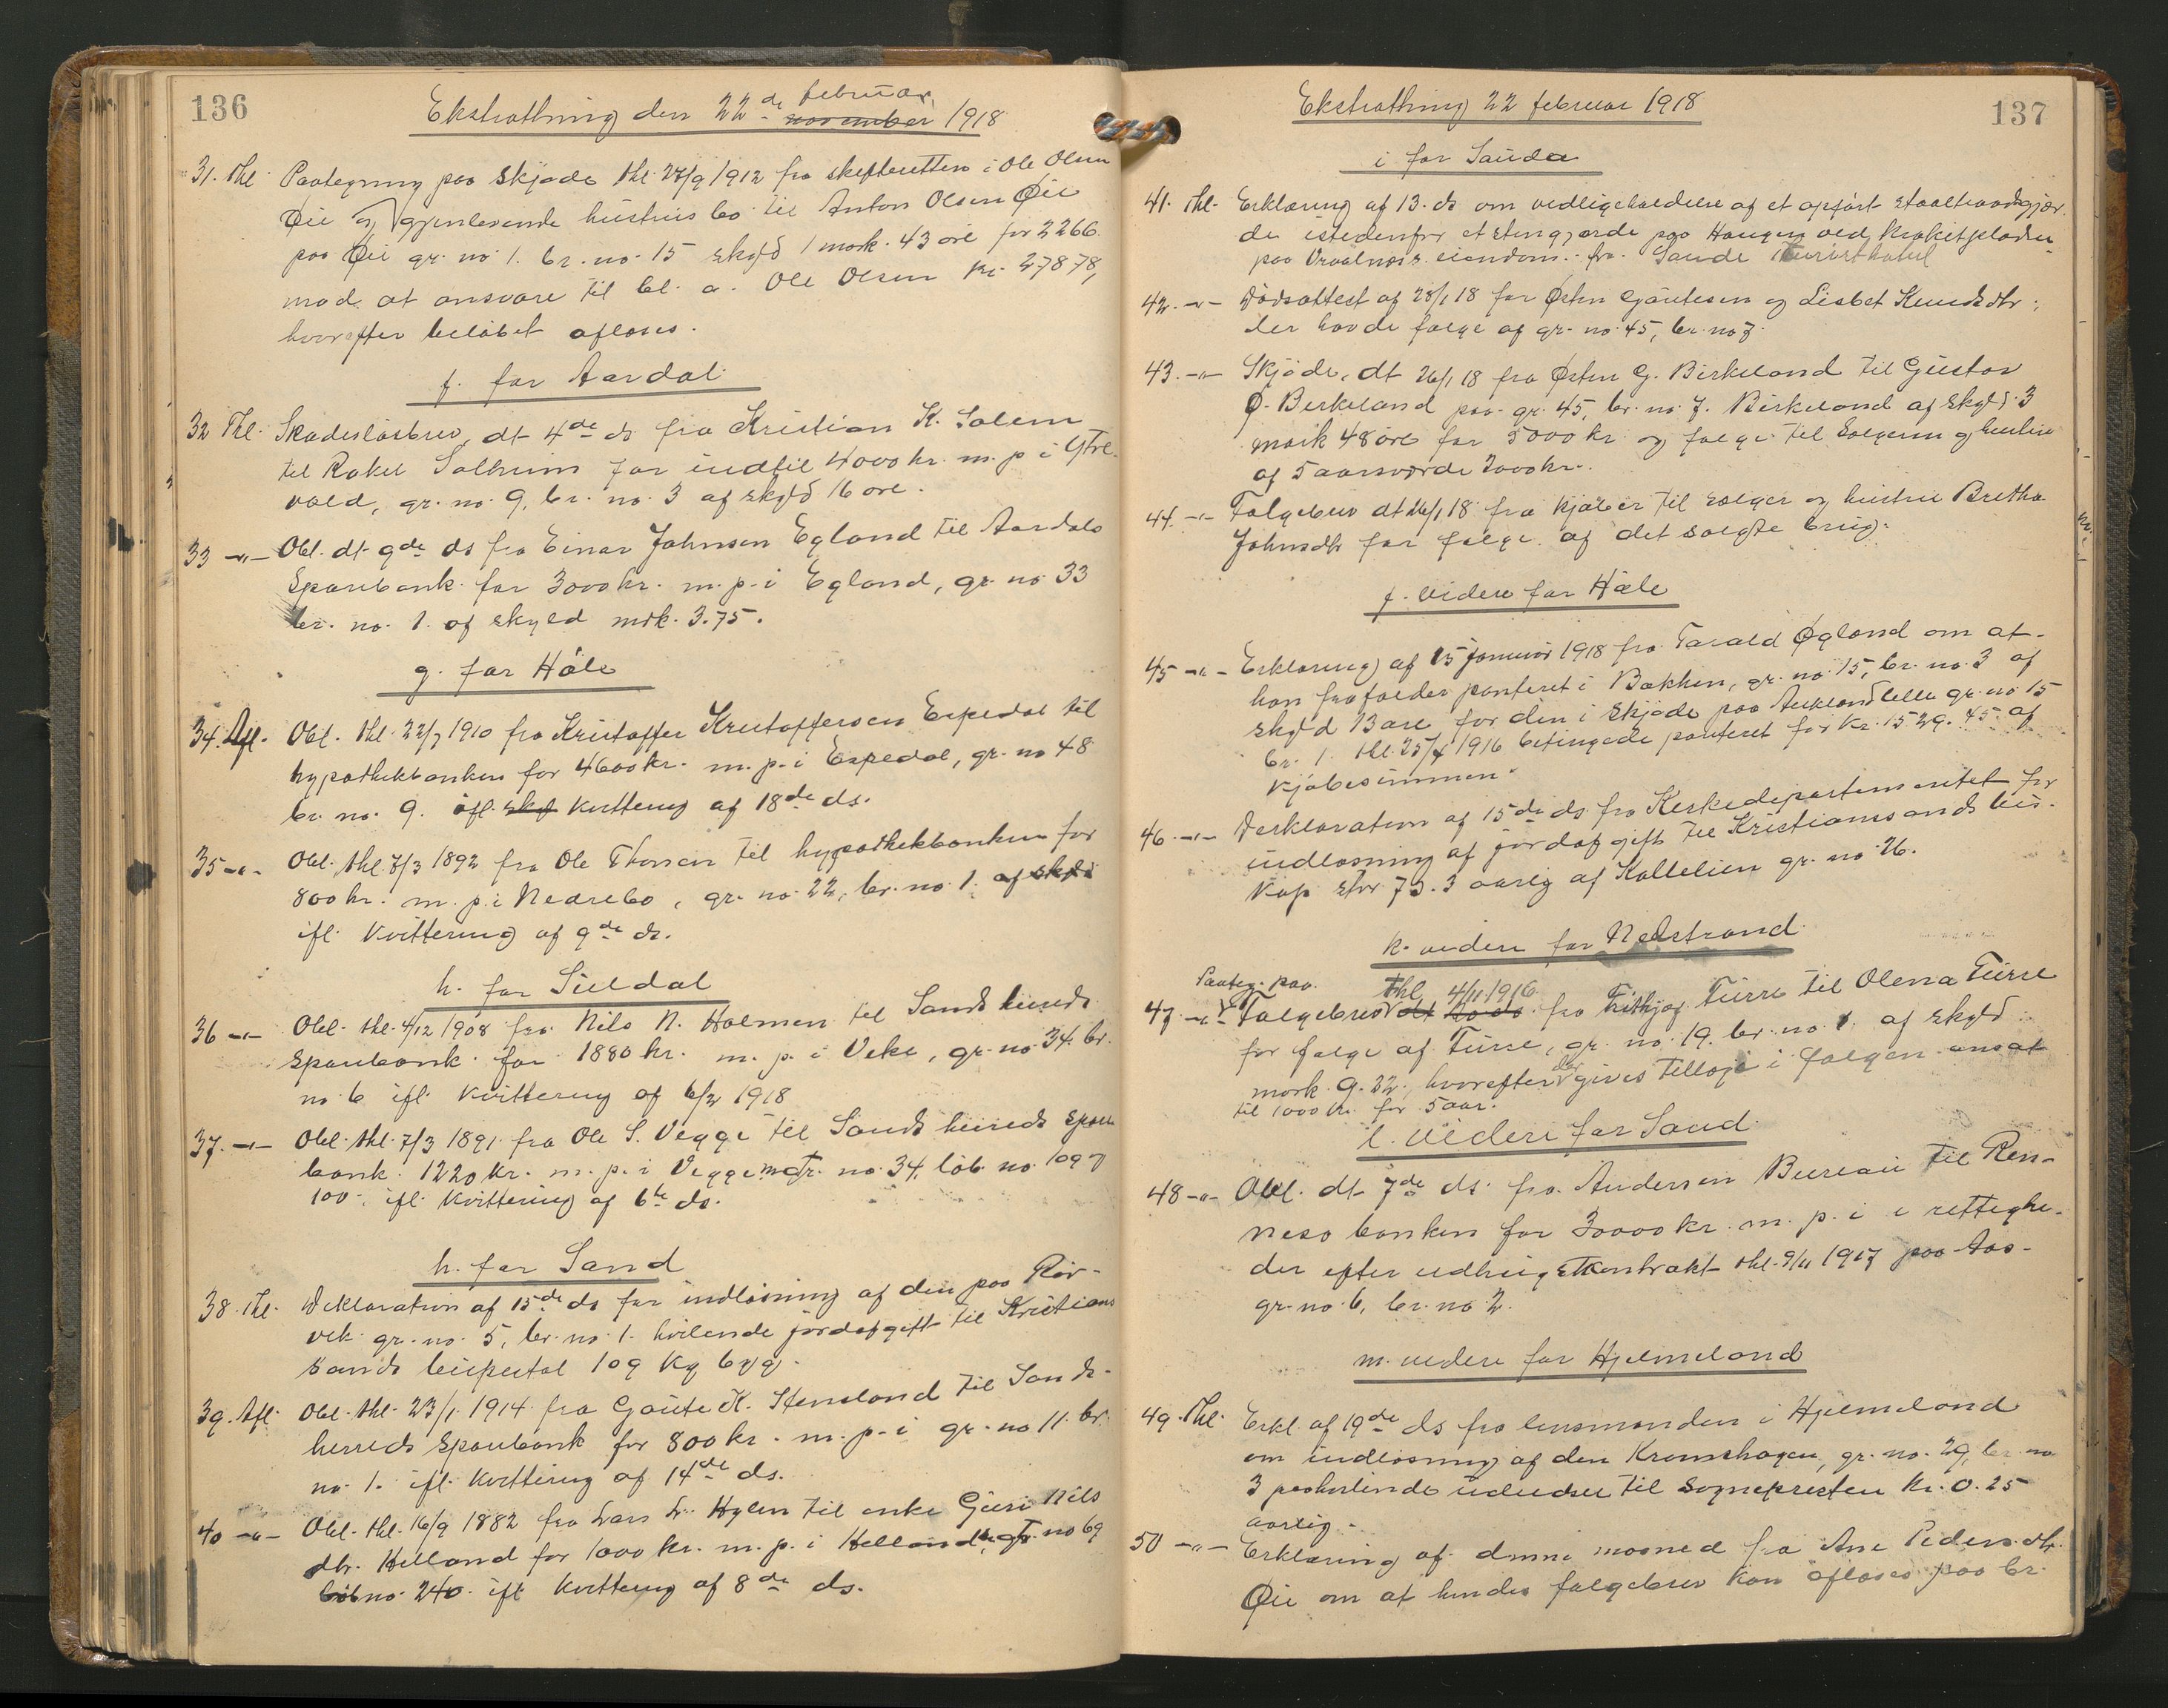 136
Ekstrathing den 22de februar november 1918
31. Thl. Paategning paa skjøde thl. 27/9 1912 fra skifteretten i Ole Olsen
Øie og gjenlevende hustrus bo til Anton Olsen Øie
paa Øie gr. no. 1. br. no. 15 skyld 1 mark 43 øre for 2266
mod at ansvare til bl. a. Ole Olsen kr. 278 78,
hvorefter beløbet afløses.
f. for Aardal
32 Thl. Skadesløsbrev, dt. 4de ds fra Kristian K. Salem
til Rakel Solheim for indtil 4000 kr. m. p. i Ytre
vold, gr. no. 9, br. no. 3 af skyld 16 øre.
33 -"- Obl. dt. 9de ds fra Einar Johnsen Egland til Aardals
Sparebank for 3000 kr. m. p. i Egland, gr. no. 33
br. no. 1. af skyld mrk. 3.75.
g. for Høle
34. Afl. Obl. thl. 22/7 1910 fra Kristoffer Kristoffersen Espedal til
hypothekbanken for 4600 kr. m. p. i Espedal, gr. no 48
br. no. 9. ifl. kvittering af 18de ds.
35 -"- Obl. thl. 7/3 1892 fra Ole Thorsen til hypothekbanken for
800 kr. m. p. i Nedrebø, gr. no. 22, br. no. 1. af skyld
ifl. kvittering af 9de ds.
h. for Suldal
36 -"- Obl. thl. 4/12 1908 fra Nils N. Holmen til Sands herreds
sparebank for 1880 kr. m. p. i Veke, gr. no. 34. br.
no. 6 ifl. kvittering af 6/2 1918
37. -"- Obl. thl. 7/3 1891 fra Ole S. Vegge til Sands herreds spare
bank 1220 kr. m. p. i Vegge mtr. no. 34, løb. no. 109 og
100. ifl. kvittering af 6te ds.
h. for Sand
38. Thl. Deklaration af 15de ds for indløsning af den paa Rør-
vik gr. no. 5, br. no. 1. hvilende jordafgift til Kristians
sands bispestol 109 kg byg.
39. Afl. Obl. thl. 23/1 1914 fra Gaute K. Stensland til Sands-
herreds Sparebank for 800 kr. m. p. i gr. no 11. br.
no. 1. ifl. kvittering af 14de ds.
40 -"- Obl. thl. 16/9 1882 fra Lars L. Hylen til enke Guri Nils
dtr. Helland for 1000 kr. m. p. i Helland, gr. no 69
løb no. 240. ifl. kvittering af 8de ds.
137
Ekstrathing 22 februar 1918
i for Sauda
41. Thl. Erklæring af 13. ds om vedligeholdelse af et opført staaltraadsgjær.
de istedenfor et stengjærde paa Haugen ved krokitpladsen
paa Vraalness eiendom. fra Saude Turisthotel
42. -"- Dødsattest af 28/1 18 for Østen Gautesen og Lisbet Knudsdtr.;
der havde følge af gr. no. 45, br. no 7.
43. -"- Skjøde, dt 26/1 18 fra Østen G. Birkeland til Gustav
Ø. Birkeland paa gr. 45, br. no. 7. Birkeland af skyld 3
mark 48 øre for 5000 kr. og følge til sælgeren og hustru
af 5 aarsværde 2000 kr.
44. -"- Følgebrev dt 26/1 18 fra kjøber til sælger og hustru Bretha
Johnsdtr for følge af det solgte brug.
j. videre for Høle
45 -"- Erklæring af 15 januar 1918 fra Tarald Øgland om at
han frafalder panteret i Bakken, gr. no. 15, br. no. 3 af
skyld 13 øre for den i skjøde paa Aukland lille gr. no 15
br. 1. thl. 25/4 1916 betingede panteret for kr. 1529.45 af
kjøbesummen.
46. -"- Deklaration af 15de ds fra Kirkedepartementet for
indløsning af jordafgift til Kristianssands bis-
kop stor 73.3 aarlig af Kaltelien gr. no. 26.
k. videre for Nedstrand
Paateg. paa thl 4/11 1916
47 -"- Følgebrev fra Fithjof Turre til Olena Turre
for følge af Turre, gr. no. 19. br. no. 1. af skyld
mark 9.22, hvorefter der gives tillæg i følgen ansat
til 1000 kr. for 5 aar.
l. videre for Sand
48 -"- Obl. dt 7de ds. fra Andersen Bureau til Ren-
nesø banken for 30000 kr. m. p. i rettighe-
der efter udbrugskontrakt thl. 9/11 1917 paa Aas-
gr. no. 6, br. no. 2.
m. videre for Hjelmeland
49. Thl. Erkl. af 19de ds fra lensmanden i Hjelmeland
om indløsning af den Kromshagen, gr. no. 29, br. no
3 paahvilende udredsel til Sognepresten kr. 0.25
aarlig.
50 -"- Erklæring af denne maaned fra Ane Pedersdtr.
Øie om at hendes følgebrev kan afløses paa br.